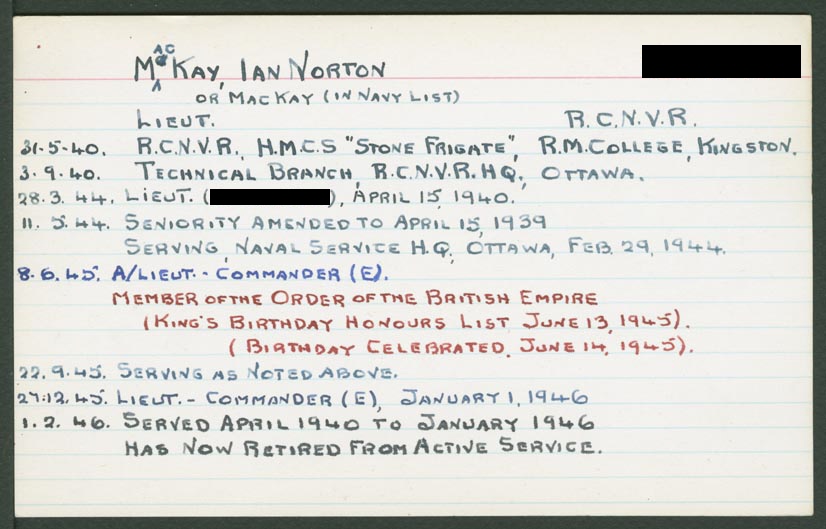 MacKay, Ian Norton
or MacKay (in Navy List)
Lieut. R.C.N.V.R.
31.5.40. R.C.N.V.R., H.M.C.S "Stone Frigate", R.M.College, Kingston.
3.9.40. Technical Branch, R.C.N.V.R. HQ, Ottawa.
28.3.44. Lieut. ( ), April 15, 1940.
11.5.44. Seniority amended to April 15, 1939
Serving, Naval Service H.Q., Ottawa, Feb. 29, 1944.
8.6.45. A/Lieut.-Commander (E).
Member of the Order of the British Empire
(King's Birthday Honours List June 13, 1945).
(Birthday Celebrated, June 14, 1945).
22.9.45. Serving as noted above.
27.12.45. Lieut.-Commander (E), January 1, 1946
1.2.46. Served April 1940 to January 1946
Has now retired from Active Service.